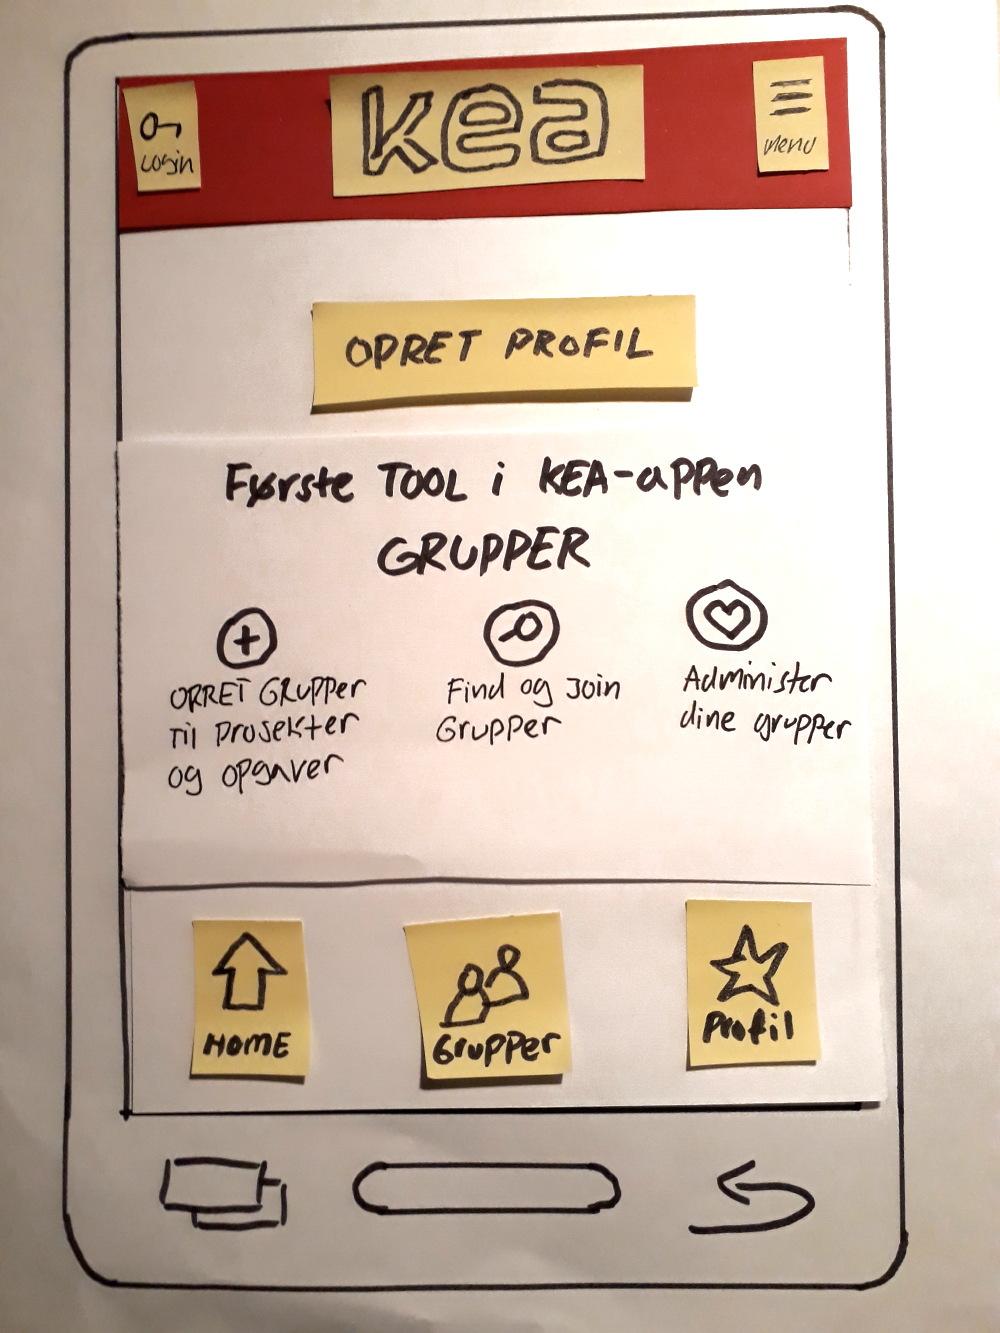 Login
kea
Menu
OPRET PROFIL
Første TOOL i KEA-appen
GRUPPER
OPRET Grupper
Til Projekter
og opgaver
Find og Join
Grupper
Administer
dine grupper
HOME
Grupper
Profil